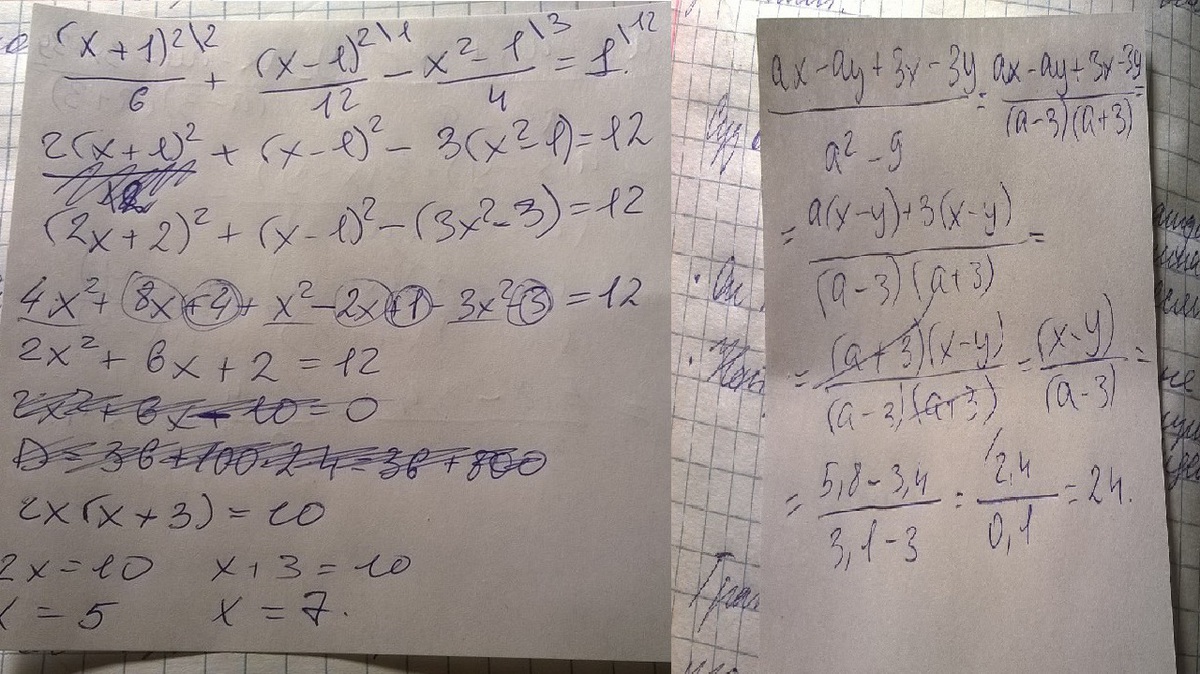 (x+1)²\2 / 6 + (x-1)²\1 / 12 - x²-1\3 / 4 = 1\12.
2(x+1)² + (x-1)² - 3(x²-1)=12
(2x+2)² + (x-1)² - (3x²-3)=12
4x² + 8x+4+ x²-2x+1- 3x²-3 =12
2x² + 6x + 2 = 12
2x² + 6x - 10 = 0
D = 36 + 100 · 24 = 36 + 800
2x(x+3) = 10
2x=10 x+3=10
x = 5 x = 7.
ax-ay+3x-3y / a²-9 = ax-ay+3x-3y / (a-3)(a+3) =
= a(x-y)+3(x-y) / (a-3)(a+3) =
= (a+3)(x-y) / (a-3)(a+3) = (x-y) / (a-3) =
= 5,8-3,4 / 3,1-3 = 2,4 / 0,1 = 24.